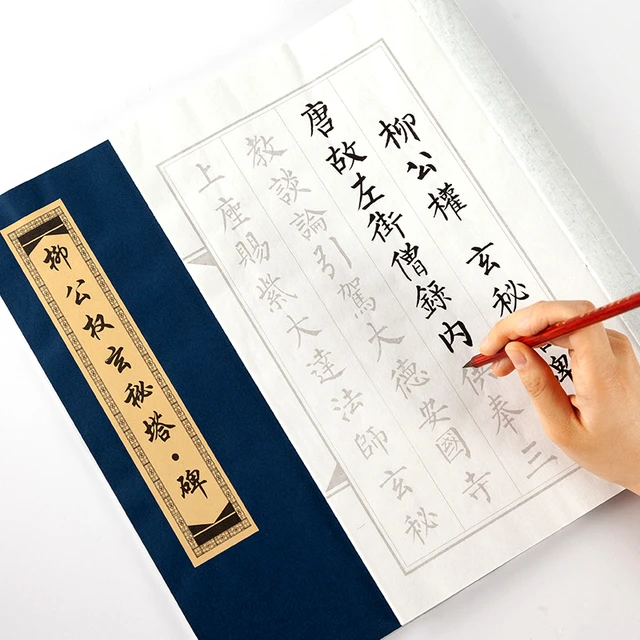 柳公權 玄秘碑
唐故左街僧錄內供奉三
教談論引駕大德安國寺
上座賜紫大達法師玄秘
柳公权玄秘塔·碑